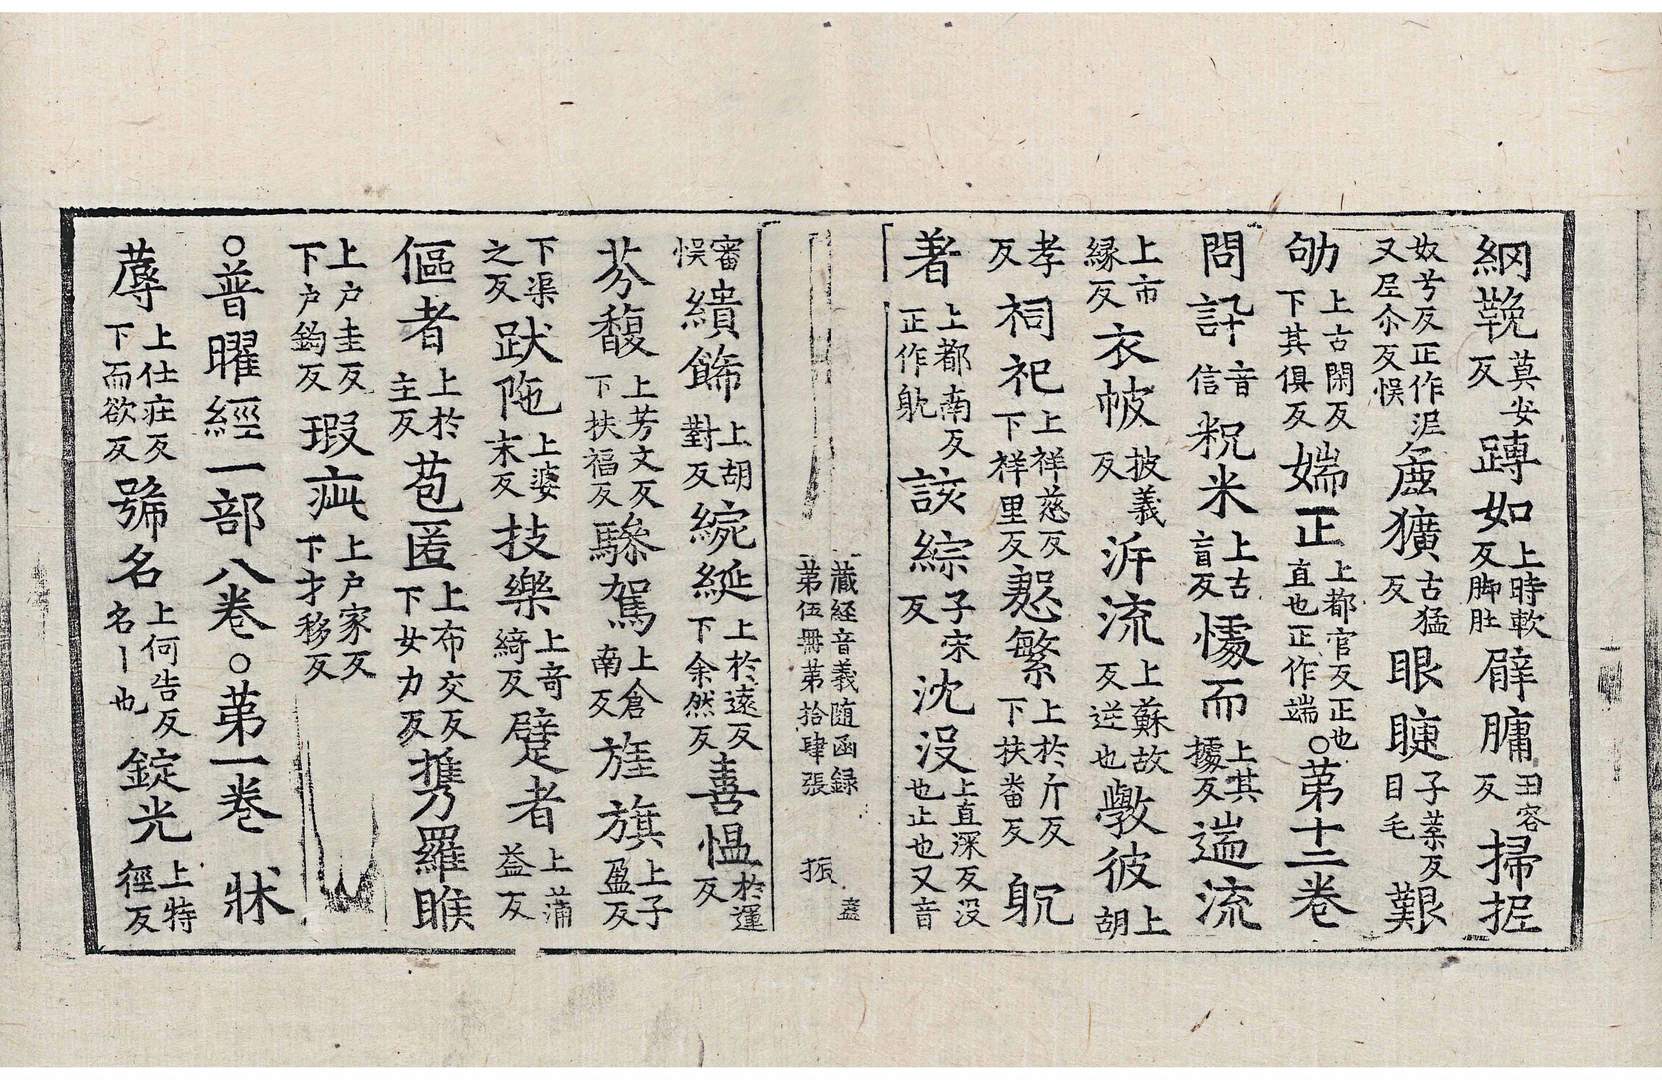 網鞔莫安反䏝如上時軟反脚肚臂𦟛丑容反掃捏
奴兮反正作泥又尼尒反悮麁獷古猛反眼睫子葉反目毛艱
劬上古閑反下其俱反媏正上都官反正也直也正作端○第十二卷
問訊音信粇米上古盲反懅而上其據反遄流
上市緣反衣帔披義反泝流上蘇故反逆也斆彼上胡
孝反祠祀上祥慈反下祥里反慇繁上於斤反下扶畨反躭
著上都南反正作躭該綜子宋反沈没上直深反没也止也又音
藏経音義随函録
第伍冊第拾肆張 振
審悮繢飾上胡對反綩綖上於遠反下余然反喜愠於運反
芬馥上芳文反下扶福反驂駕上倉南反旍旗上子盈反
下渠之反跋陁上婆末反技樂上竒綺反躄者上蒲益反
傴者上於主反苞匿上布交反下女力反攜羅睺
上户圭反下户鈎反瑕疵上户家反下才移反
○普曜經一部八卷○第一卷 牀
蓐上仕庄反下而欲反號名上何告反名丨也錠光上特徑反